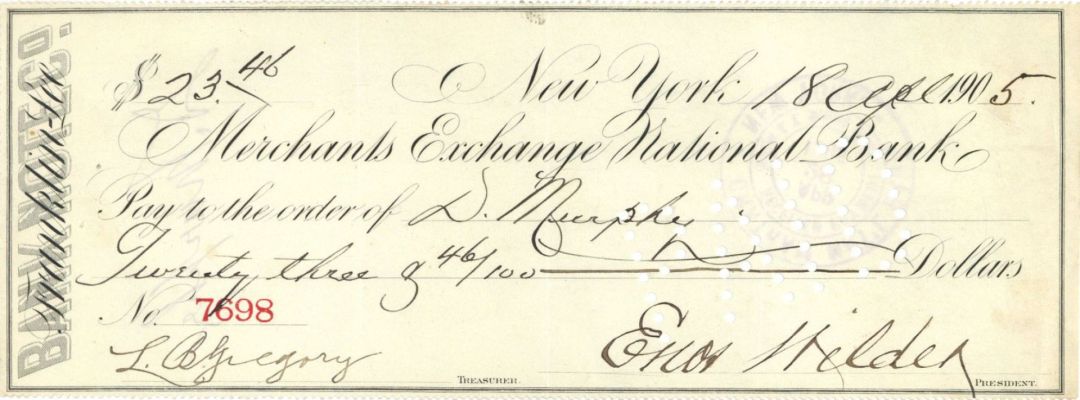 $ 23.46
New York 18 Apl 1905.
Merchants Exchange National Bank
Pay to the order of D. Murphy
Twenty three & 46/100 Dollars
No. 7698
L. B. Gregory
TREASURER.
Enos Wilder
PRESIDENT.